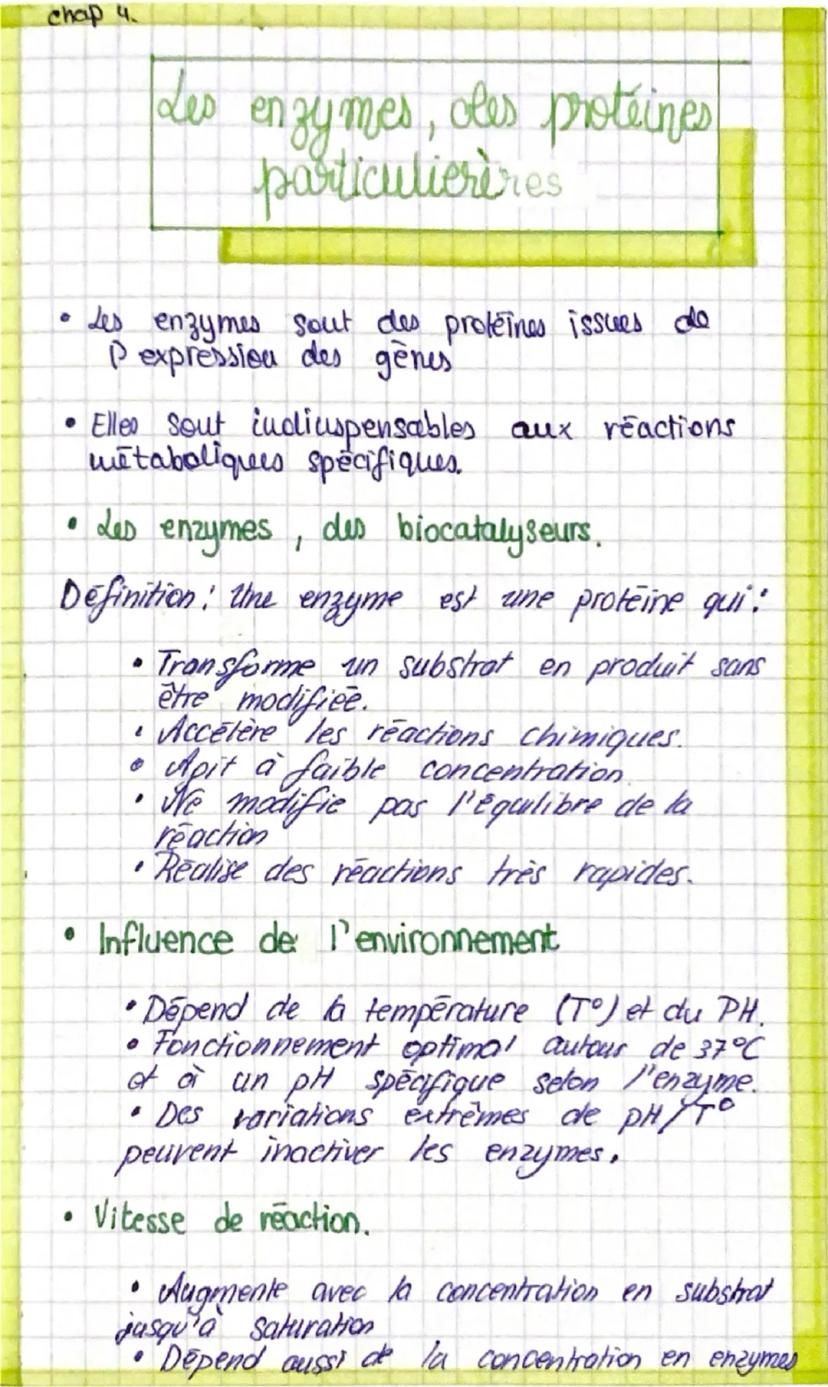 chap 4.
Les enzymes, des protéines
particulierères
• Les enzymes sont des protéines issues de
l'expression des gènes
• Elles sont indinspensables aux réactions
métaboliques spécifiques.
• Les enzymes, des biocatalyseurs.
Définition: Une enzyme est une protéine qui:
• Transforme un substrat en produit sans
être modifiée.
• Accélère les réactions chimiques.
• Agit à faible concentration
• Ne modifie pas l'équilibre de la
réaction
• Réalise des réactions très rapides.
• Influence de l'environnement
• Dépend de la température (T°) et du PH.
• Fonctionnement optimal autour de 37°C
et à un pH spécifique selon l'enzyme.
• Des variations extrêmes de pH/T°
peuvent inactiver les enzymes.
• Vitesse de réaction.
• Augmente avec la concentration en substrat
jusqu'à saturation
• Dépend aussi de la concentration en enzymes